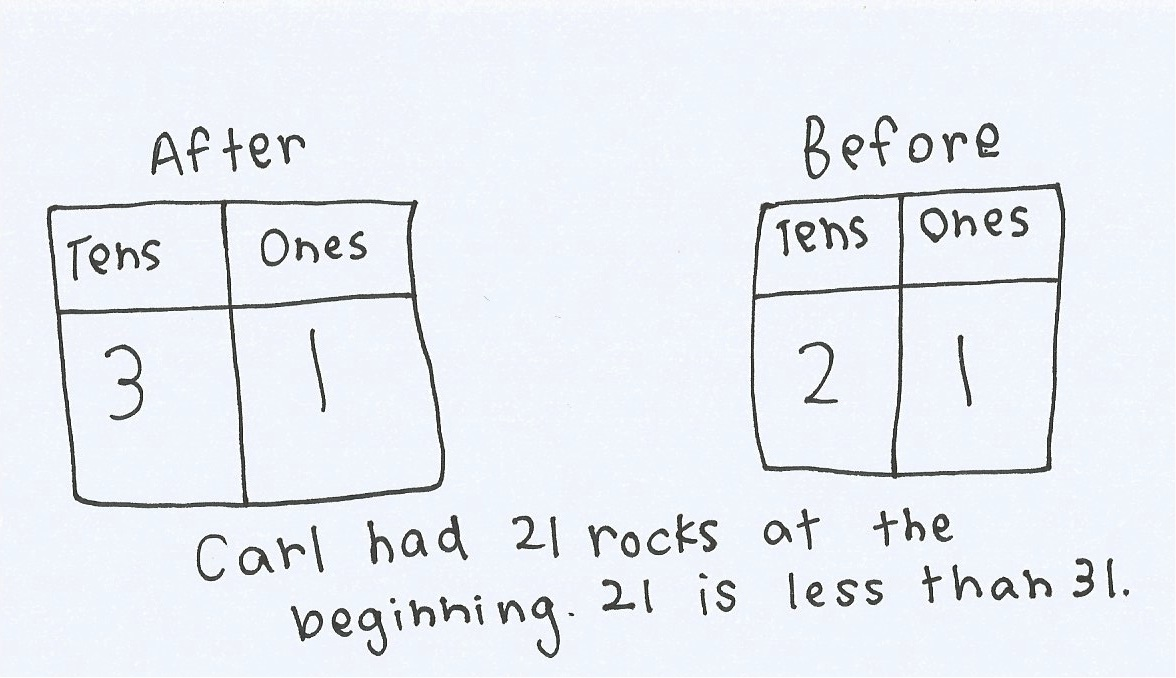 After Before
Tens Ones Tens Ones
3 1 2 1
Carl had 21 rocks at the
beginning. 21 is less than 31.